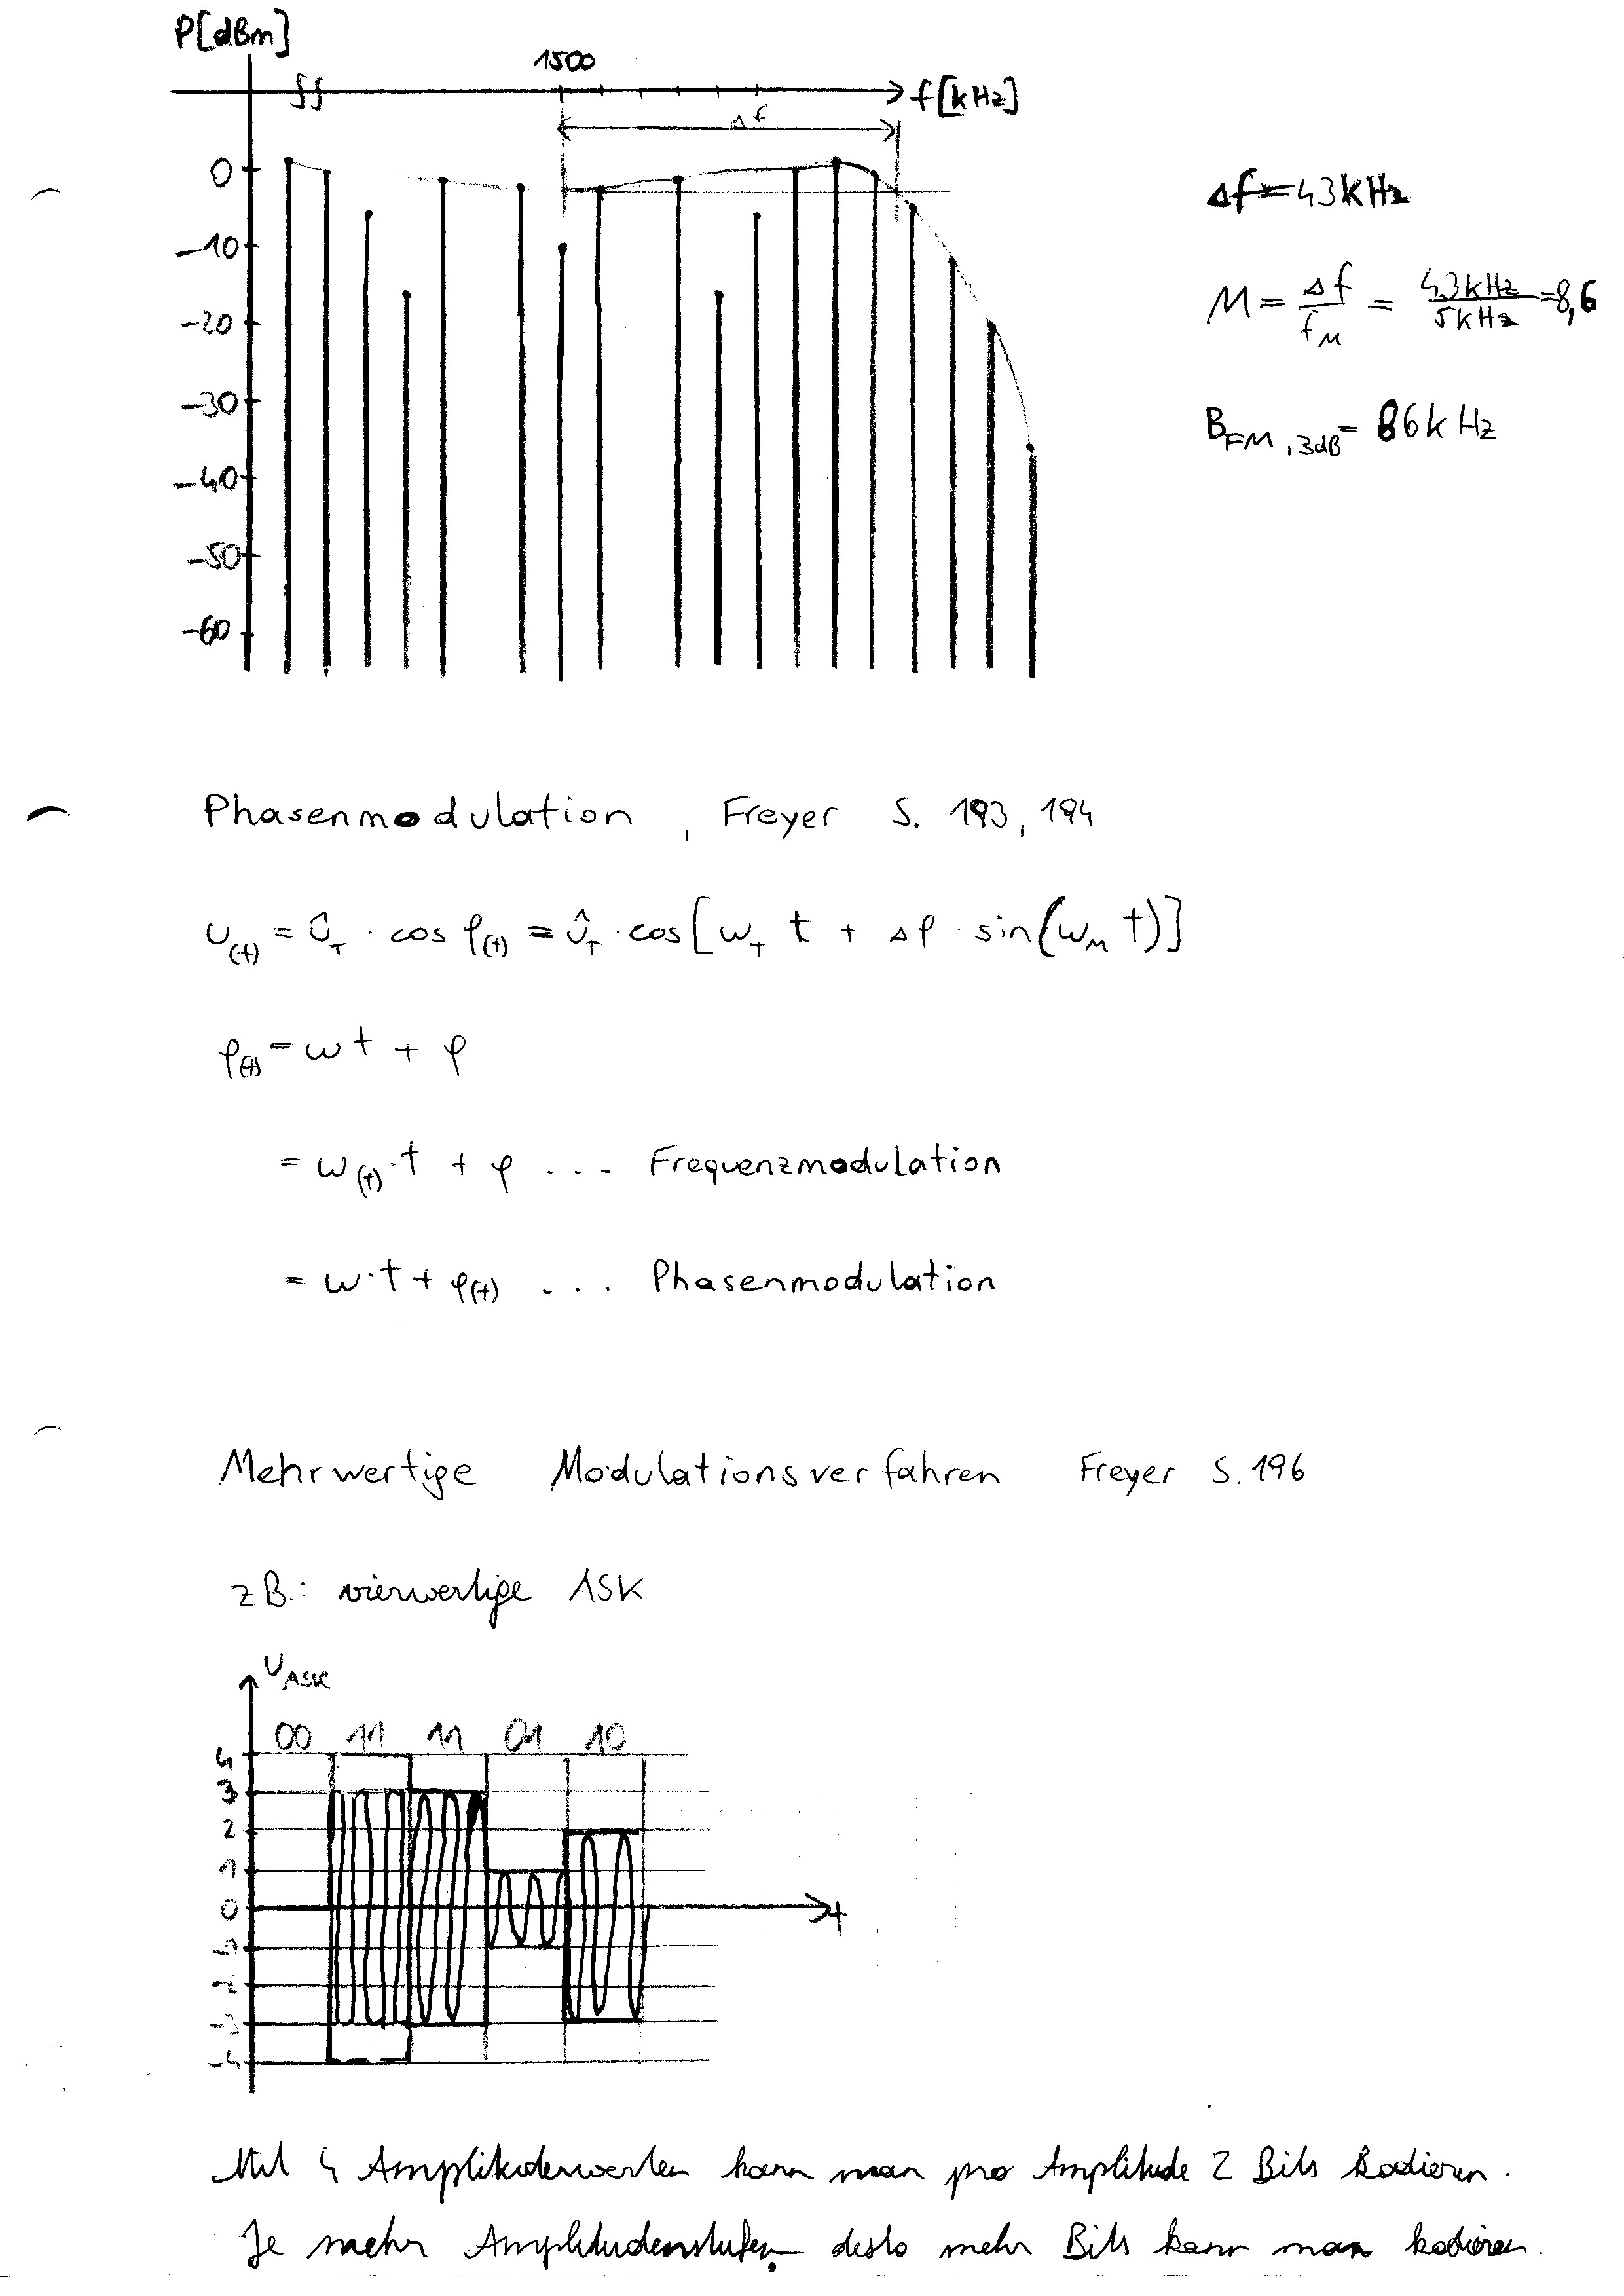 P[dBm]
1500
f[kHz]
Δf
0
-10
-20
-30
-40
-50
-60
Δf = 43kHz
M = Δf / f_M = 43kHz / 5kHz = 8,6
B_FM,3dB = 86kHz
Phasenmodulation , Freyer S. 193, 194
u(t) = Û_T · cos φ(t) = Û_T · cos[ω_T t + Δφ · sin(ω_M t)]
φ(t) = ωt + φ
= ω(t)·t + φ ... Frequenzmodulation
= ω·t + φ(t) ... Phasenmodulation
Mehrwertige Modulationsverfahren Freyer S. 196
zB.: vierwertige ASK
U_ASK
00 11 11 01 10
4
3
2
1
0
-1
-2
-3
-4
t
Mit 4 Amplitudenwerten kann man pro Amplitude 2 Bits kodieren.
Je mehr Amplitudenstufen desto mehr Bits kann man kodieren.